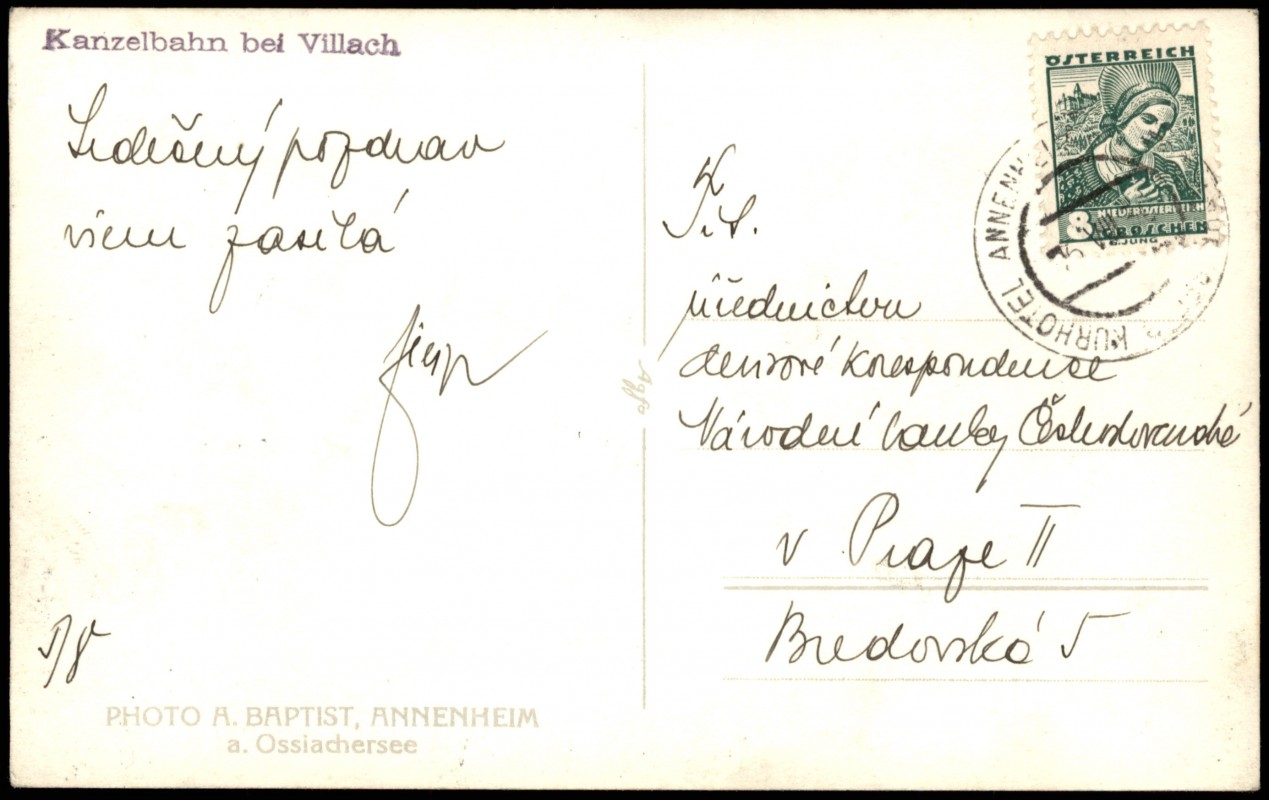 Kanzelbahn bei Villach
Srdečný pozdrav
všem zasílá
5/8
PHOTO A. BAPTIST, ANNENHEIM
a. Ossiachersee
Agfa
ÖSTERREICH
8 NIEDERÖSTERREICH
GROSCHEN
KURHOTEL ANNENHEIM
K
Tit.
úřednictvu
devisové korespondence
Národní banky Československé
v Praze II
Bredovská 5